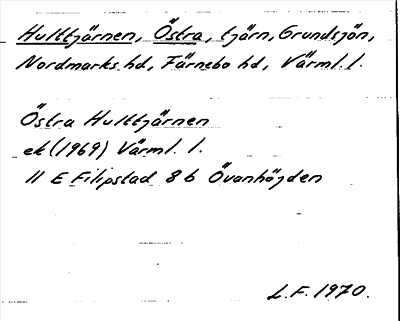 Hulttjärnen, Östra, tjärn, Grundsjön,
Nordmarks hd, Färnebo hd, Värml. l.
Östra Hulttjärnen
ek (1969) Värml. l.
11 E Filipstad 8 b Övanhöjden
L.F. 1970.